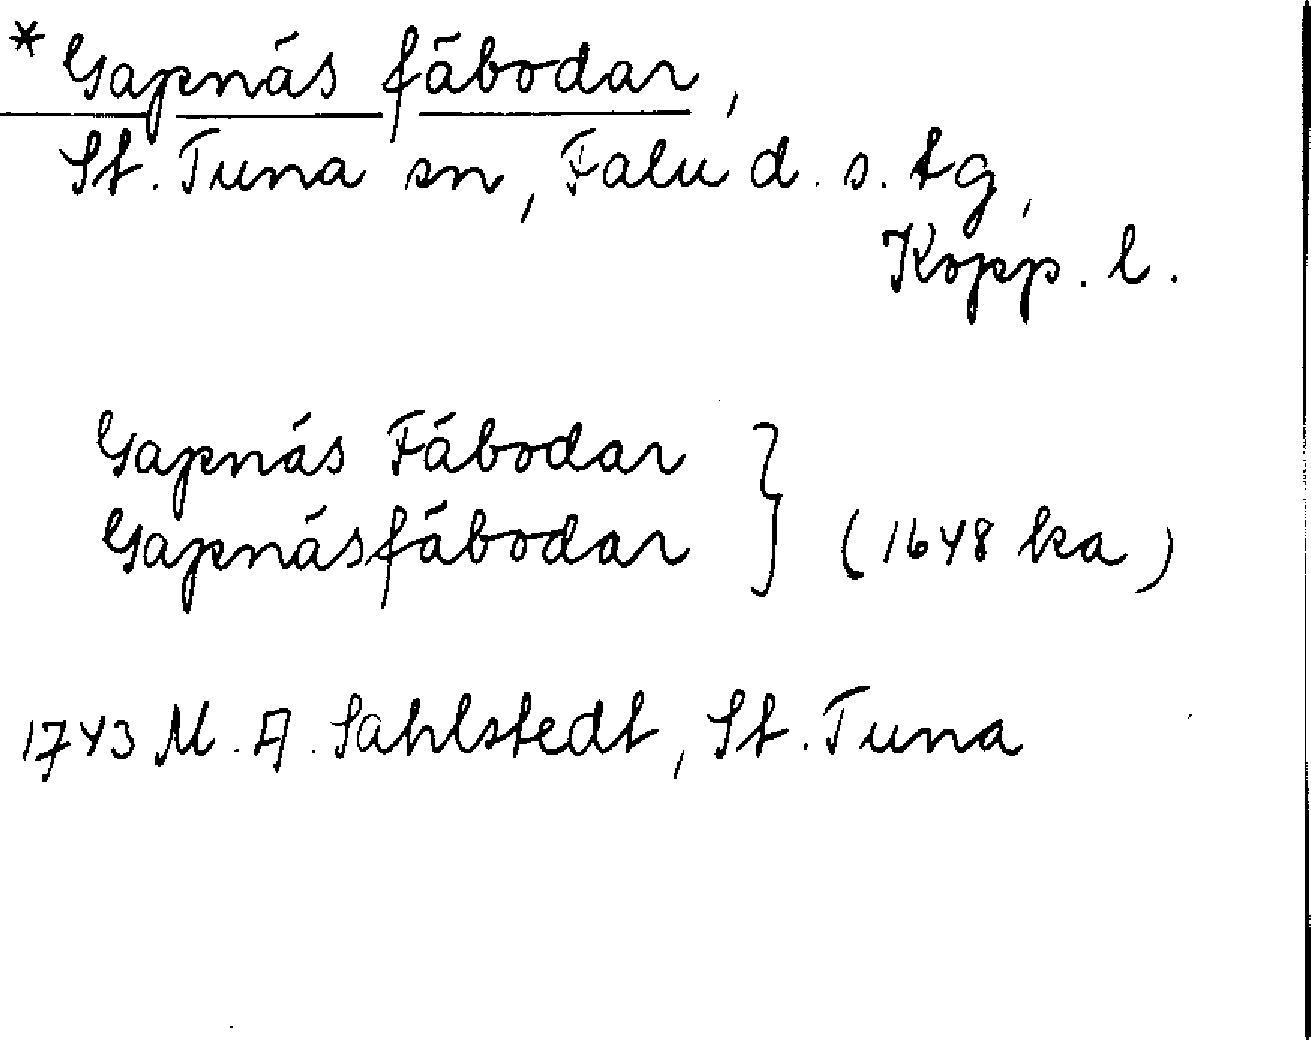 *Gapnäs fäbodar,
St. Tuna sn, Falu d. s. tg,
Kopp. l.
Gapnäs Fäbodar
Gapnäsfäbodar } (1648 ka)
1743 M. A. Sahlstedt, St. Tuna